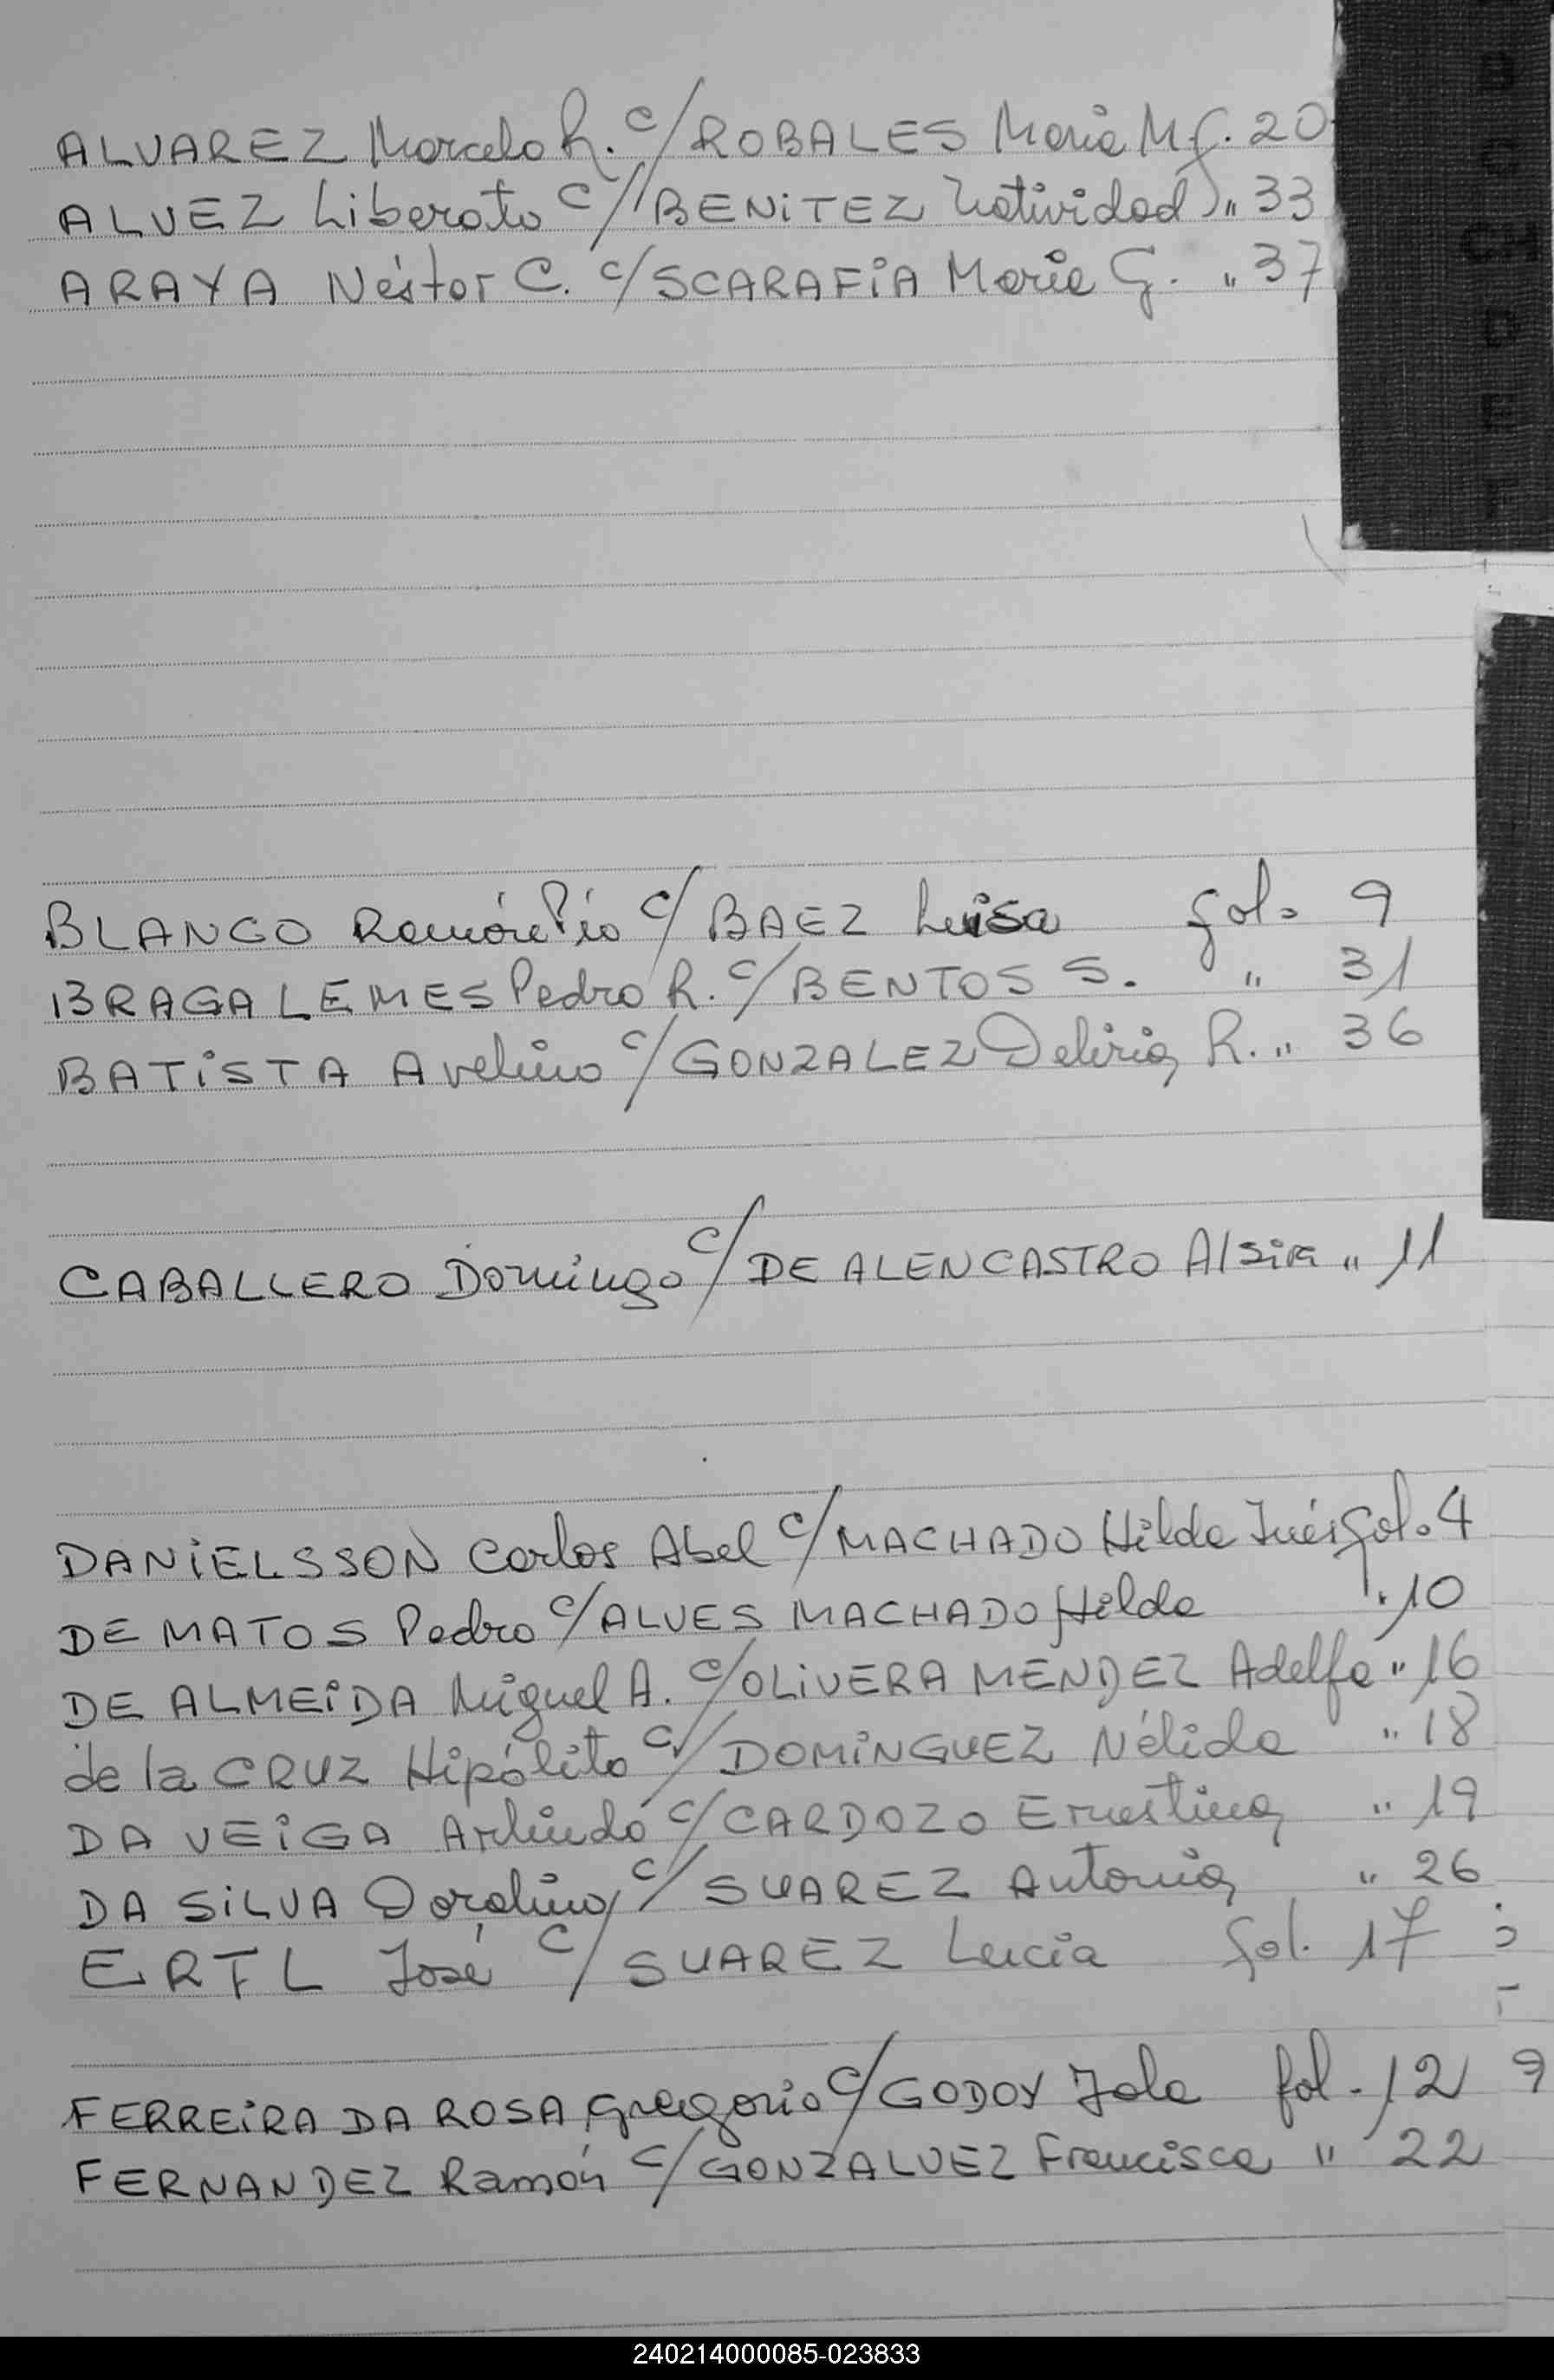 ALVAREZ Marcelo R. c/ ROBALES Maria M f. 20
ALVEZ Liberato c/ BENiTEZ Natividad " 33
ARAYA Néstor C. c/ SCARAFiA Maria G. " 37
BLANCO Ramón Pío c/ BAEZ Luisa fol. 9
BRAGA LEMES Pedro R. c/ BENTOS S. " 31
BATiSTA Avelino c/ GONZALEZ Deliria R. " 36
CABALLERO Domingo c/ DE ALENCASTRO Alsira " 11
DANiELSSON Carlos Abel c/ MACHADO Hilda Inés fol. 4
DE MATOS Pedro c/ ALVES MACHADO Hilda " 10
DE ALMEiDA Miguel A. c/ OLiVERA MENDEZ Adelfa " 16
de la CRUZ Hipólito c/ DOMiNGUEZ Nélida " 18
DA VEiGA Arlindo c/ CARDOZO Ernestina " 19
DA SiLVA Doralino c/ SUAREZ Antonia " 26
ERTL José c/ SUAREZ Lucia fol. 17
FERREiRA DA ROSA Gregorio c/ GODOY Jola fol. 12 9
FERNANDEZ Ramón c/ GONZALVEZ Francisca " 22
240214000085-023833